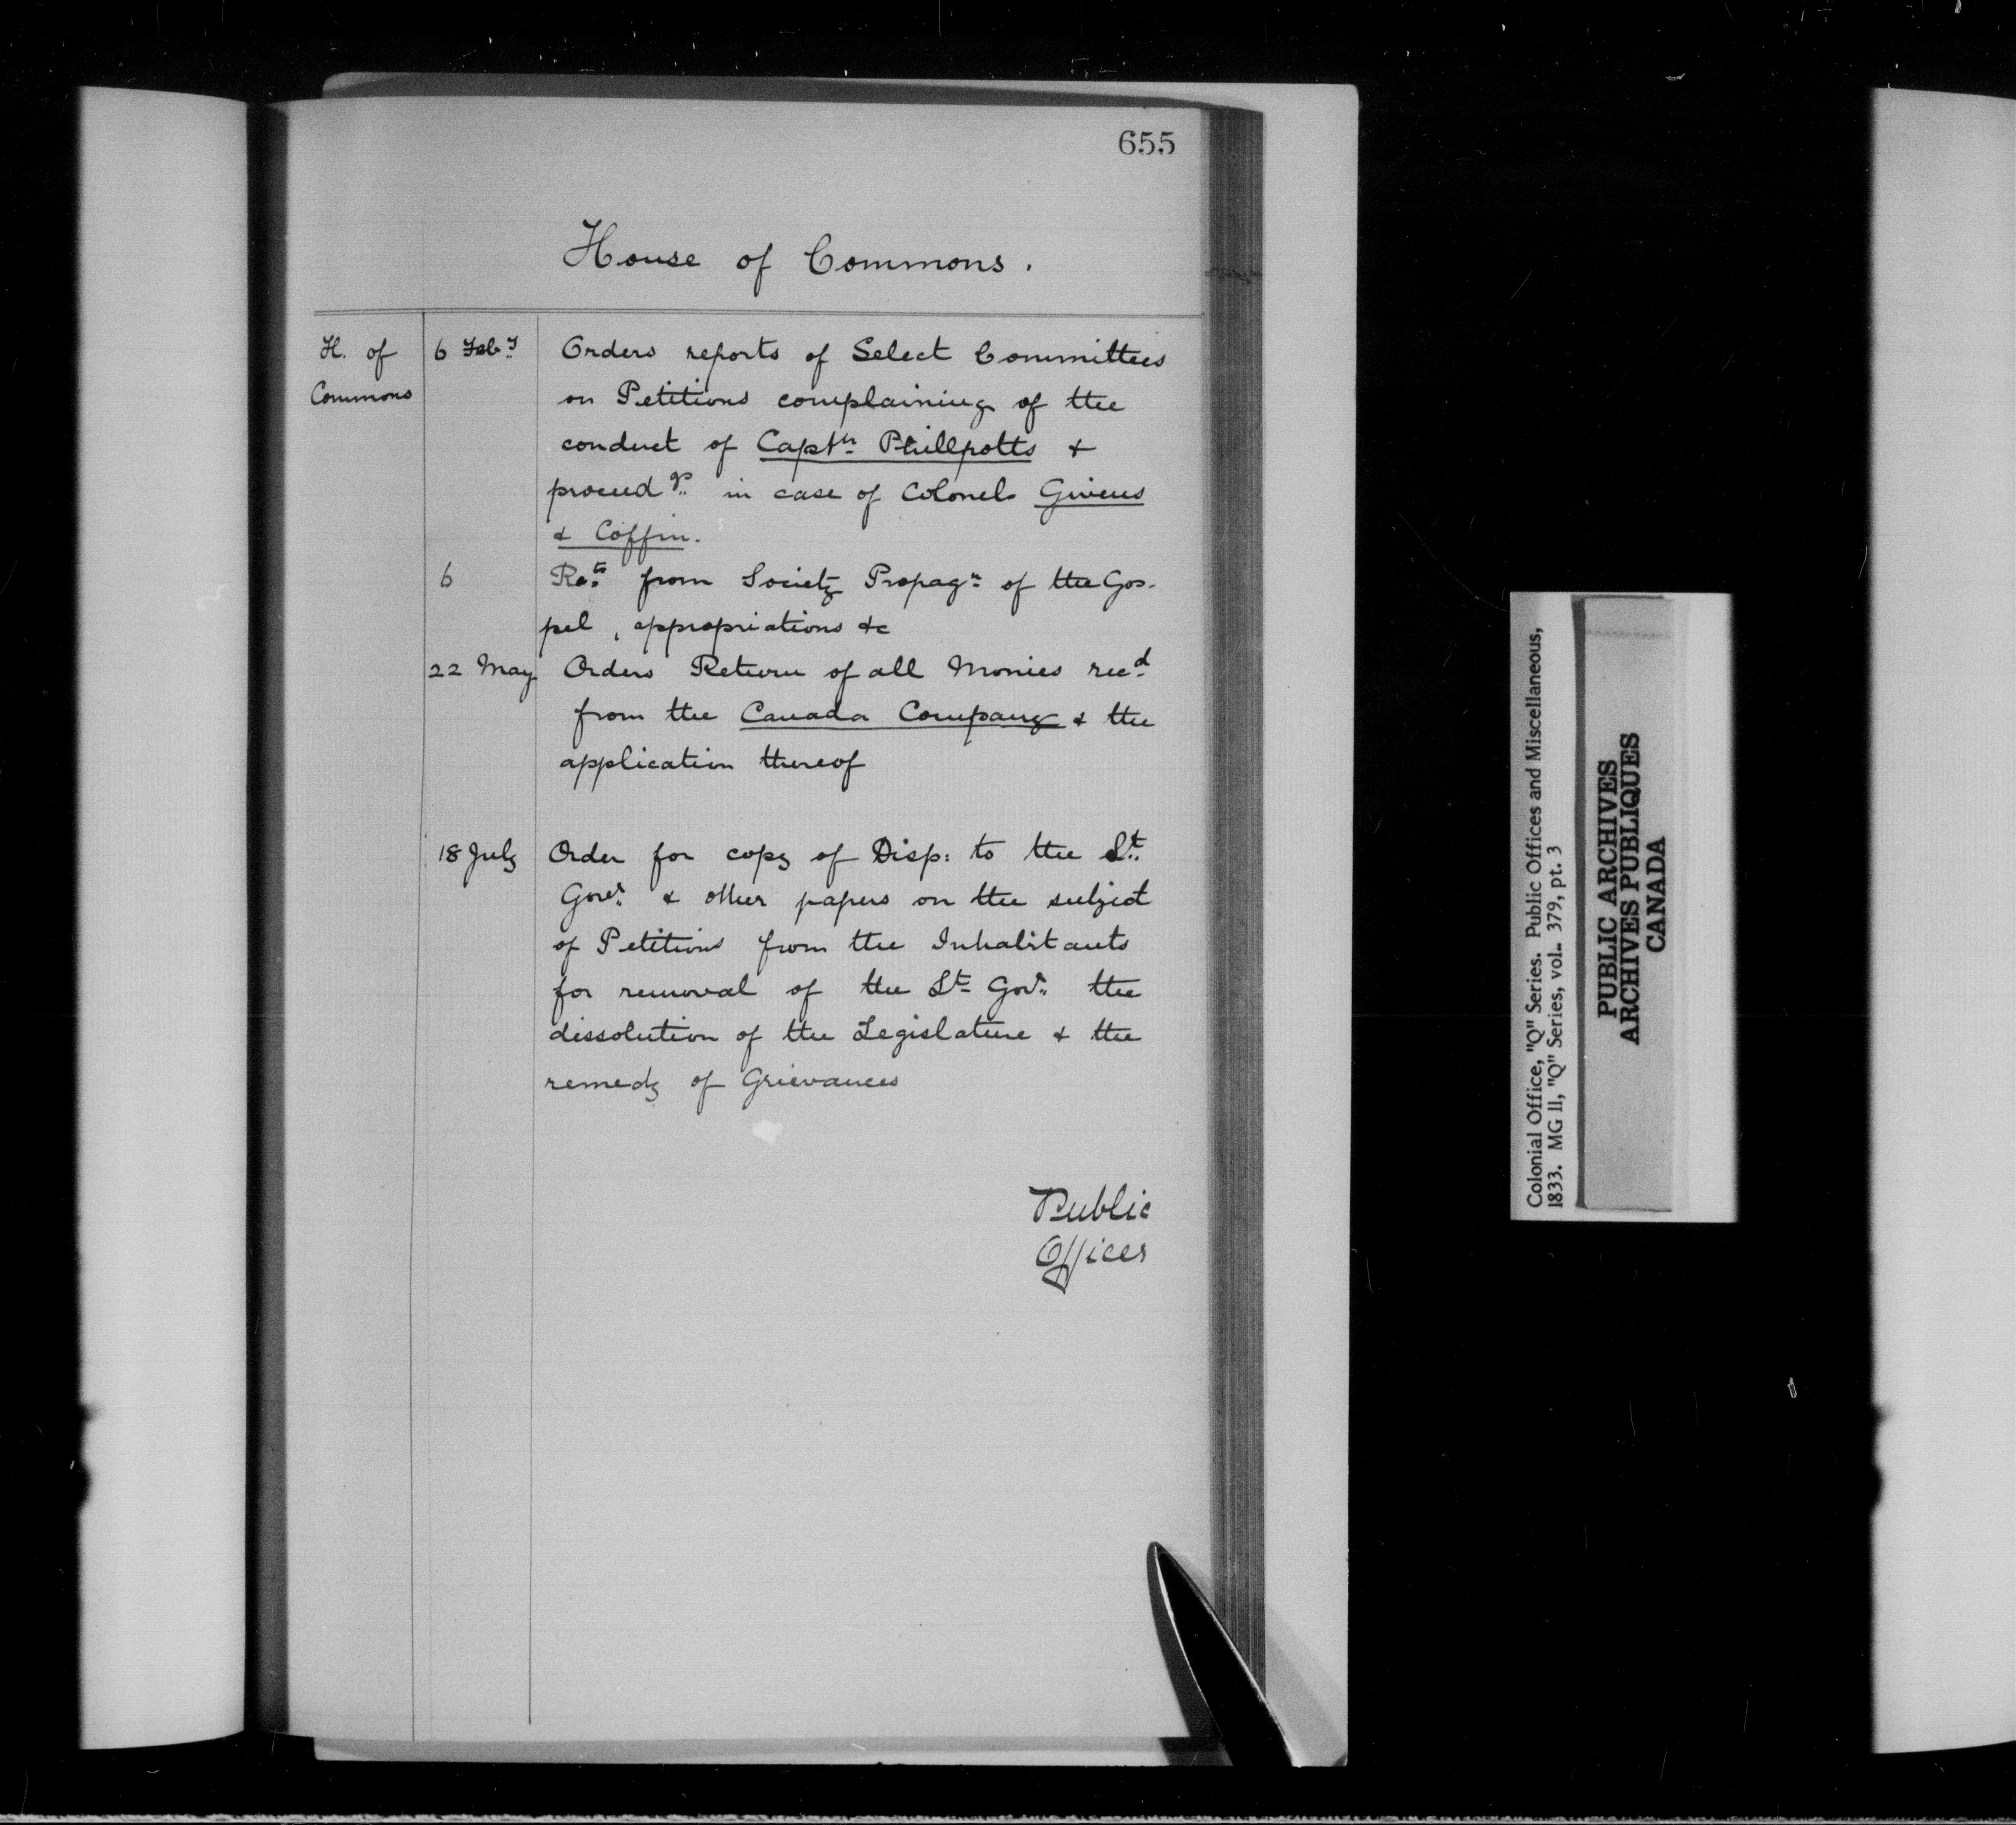 655
House of Commons.
H. of Commons
6 Feby
Orders reports of Select Committees
on Petitions complaining of the
conduct of Captn Phillpotts &
proceedgs in case of Colonels Givens
& Coffin.
6
from Society Propagn of the Gos-
pel, appropriations &c
22 May
Orders Return of all Monies recd
from the Canada Company & the
application thereof
18 July
Order for copy of Disp: to the Lt
Govr & other papers on the subject
of Petitions from the Inhabitants
for removal of the Lt Govr the
dissolution of the Legislature & the
remedy of Grievances
Public
Offices
Colonial Office, "Q" Series. Public Offices and Miscellaneous,
1833. MG 11, "Q" Series, vol. 379, pt. 3
PUBLIC ARCHIVES
ARCHIVES PUBLIQUES
CANADA